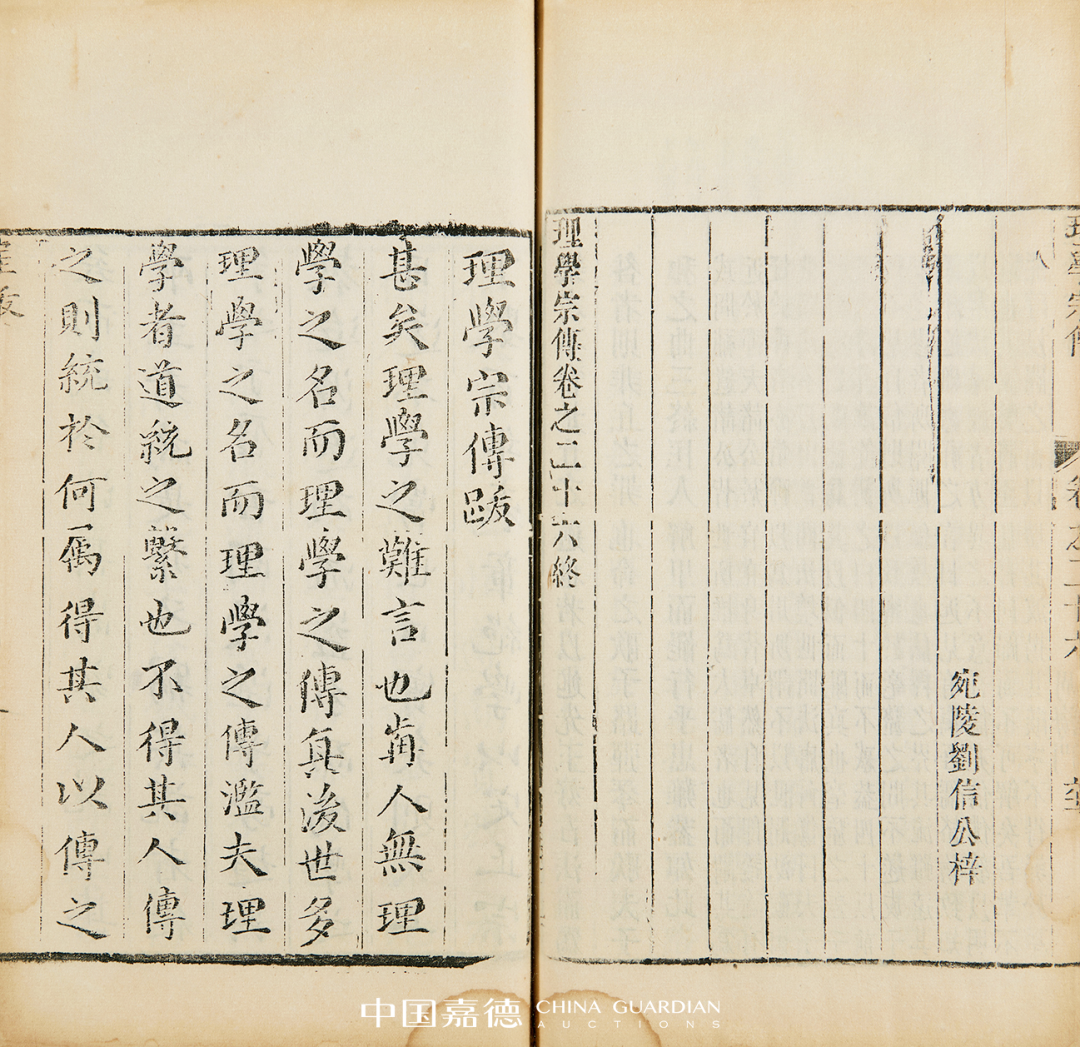 理學宗傳
卷之二十六
宛陵劉信公梓
理學宗傳卷之二十六終
理學宗傳跋
甚矣理學之難言也前人無理
學之名而理學之傳真後世多
理學之名而理學之傳濫夫理
學者道統之繫也不得其人傳
之則統於何屬得其人以傳之
中国嘉德 CHINA GUARDIAN
AUCTIONS